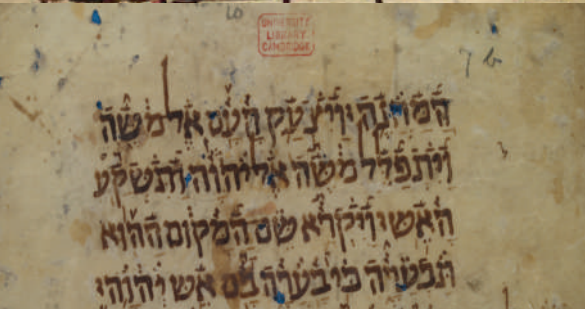 10
UNIVERSITY
LIBRARY
CAMBRIDGE
7 b
המחנה ויצעק העם אל משה
ויתפלל משה אל יהוה ותשקע
האש׃ ויקרא שם המקום ההוא
תבערה כי בערה בם אש יהוה׃